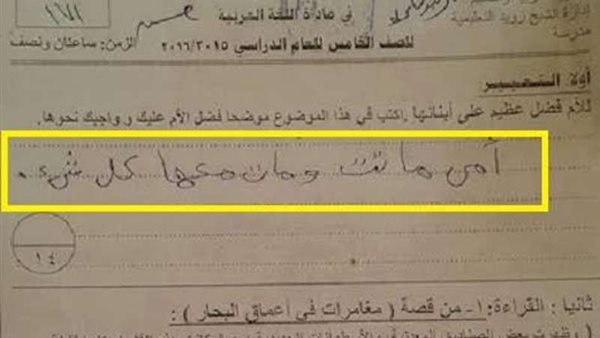 إدارة الشيخ زويد التعليمية
مدرسة
في مادة اللغة العربية
للصف الخامس للعام الدراسي ٢٠١٦/٢٠١٥
الزمن: ساعتان ونصف
أولا التعبير
للأم فضل عظيم على أبنائها .اكتب في هذا الموضوع موضحا فضل الأم عليك وواجبك نحوها.
أمي ماتت ومات معها كل شيء .
١٤
ثانيا : القراءة: ١- من قصة ( مغامرات في أعماق البحار ) :